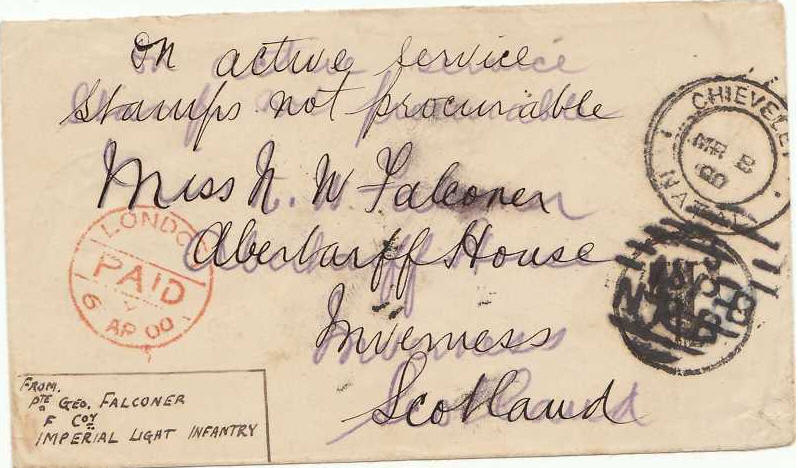 On active service
Stamps not procurable
Miss N. W Falconer
Abertarff House
Inverness
Scotland
CHIEVELEY
MR 8
00
NATAL
LONDON
PAID
6 AP 00
FROM.
PTE GEO. FALCONER
F COY
IMPERIAL LIGHT INFANTRY